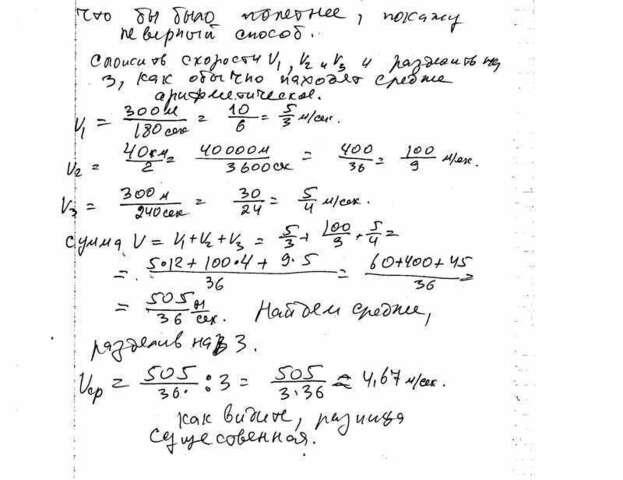 Что бы было полезнее, покажу
неверный способ.
Сложить скорости V₁, V₂ и V₃ и разделить на
3, как обычно находят среднее
арифметическое.
V₁ = 300м/180сек = 10/6 = 5/3 м/сек.
V₂ = 40км/2 = 40000м/3600сек = 400/36 = 100/9 м/сек.
V₃ = 300м/240сек = 30/24 = 5/4 м/сек.
Сумма V = V₁+V₂+V₃ = 5/3 + 100/9 + 5/4 =
= 5·12+100·4+9·5/36 = 60+400+45/36 =
= 505/36 м/сек. Найдем среднее,
разделив на 3.
Vср = 505/36 : 3 = 505/3·36 ≈ 4,67 м/сек.
как видите, разница
существенная.